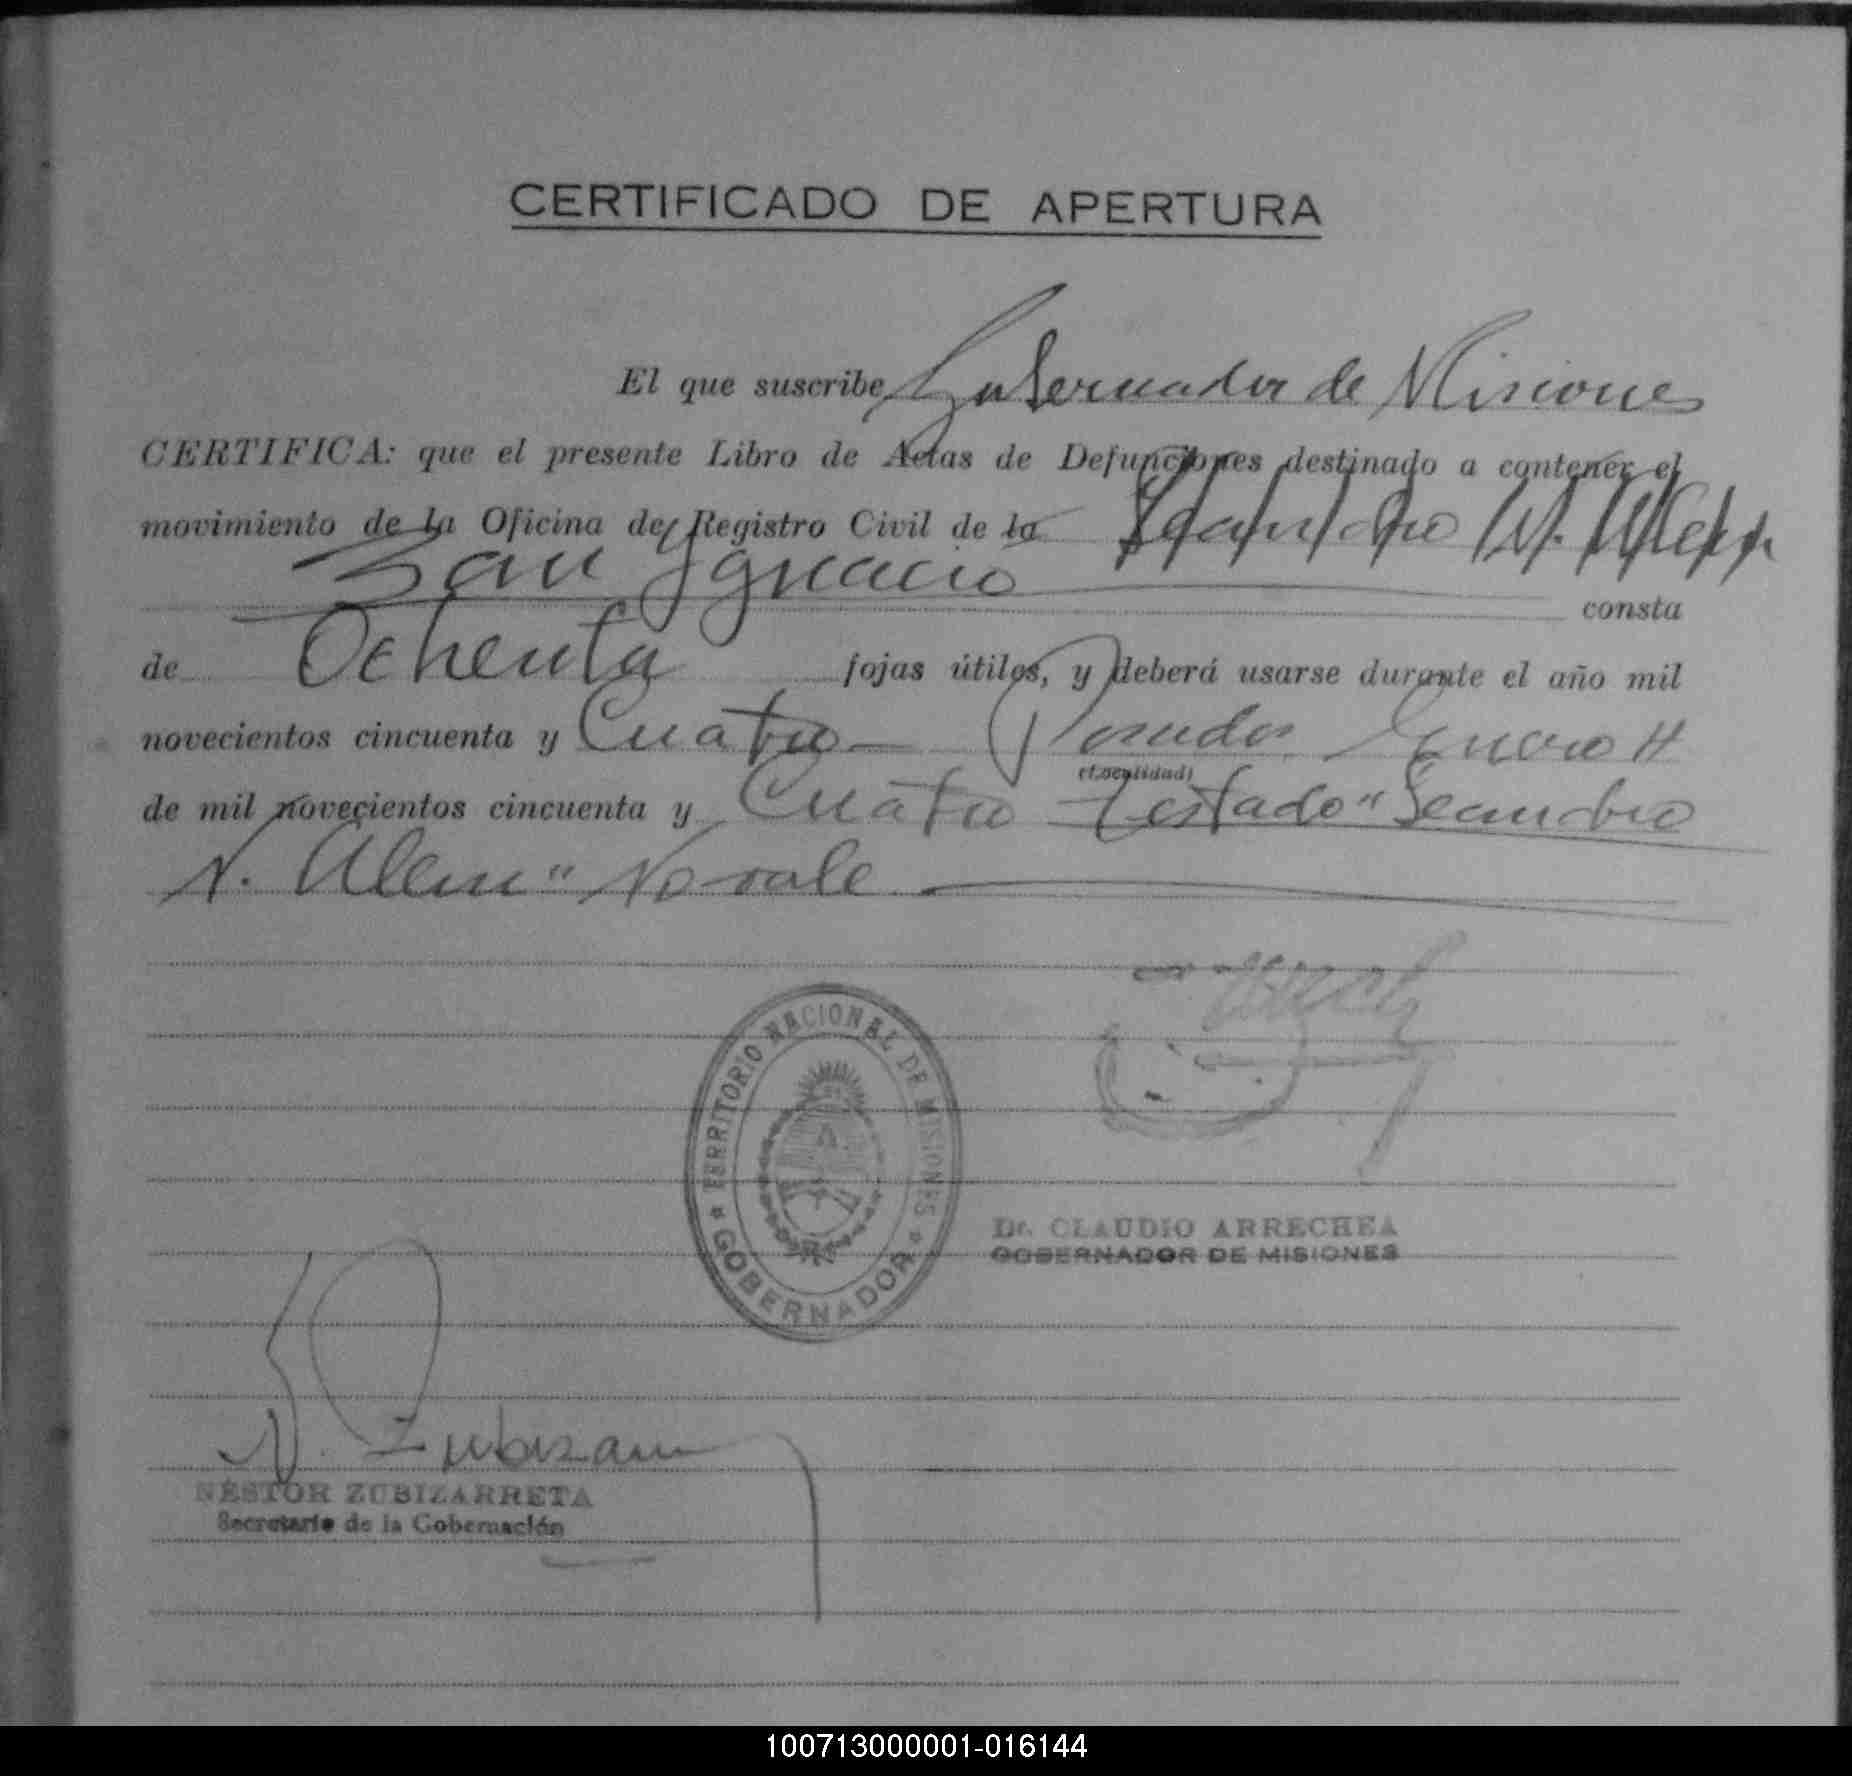 CERTIFICADO DE APERTURA
El que suscribe Gobernador de Misiones
CERTIFICA: que el presente Libro de Actas de Defunciones destinado a contener el
movimiento de la Oficina de Registro Civil de la Leandro N. Alem
San Ignacio consta
de Ochenta fojas útiles, y deberá usarse durante el año mil
novecientos cincuenta y Cuatro Posadas Enero
(Localidad)
de mil novecientos cincuenta y Cuatro Testado "Leandro
N. Alem" No vale
TERRITORIO NACIONAL DE MISIONES
GOBERNADOR
Dr. CLAUDIO ARRECHEA
GOBERNADOR DE MISIONES
N. Zubizarreta
NÉSTOR ZUBIZARRETA
Secretario de la Gobernación
100713000001-016144